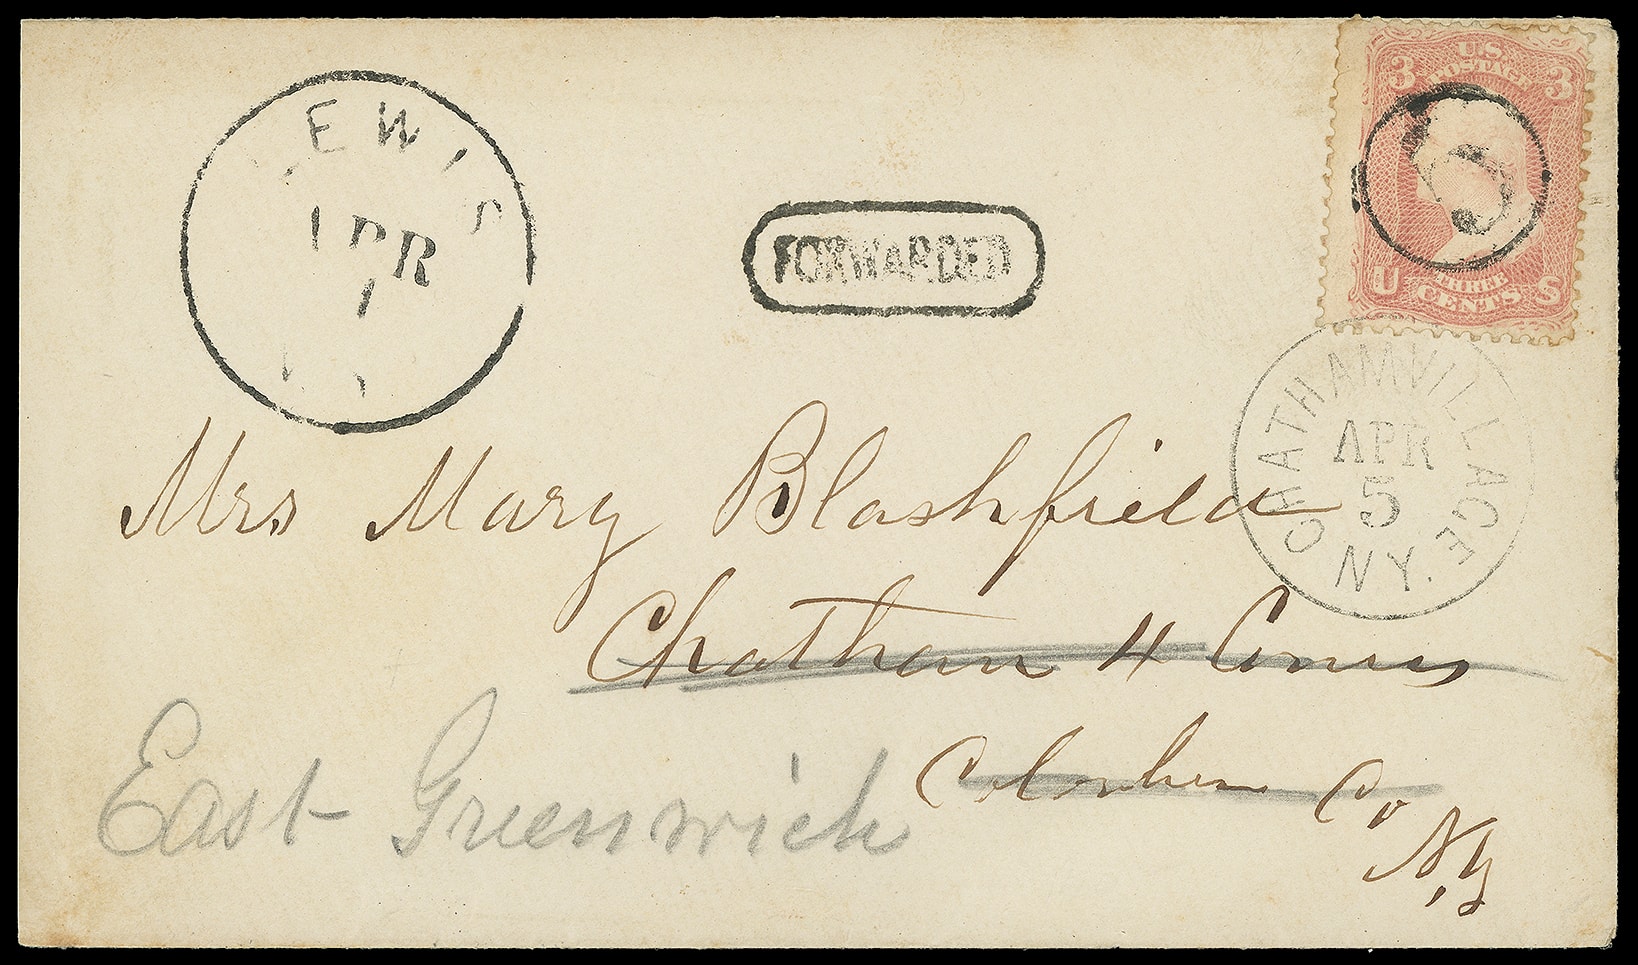 LEWIS
APR
1
N.Y.
FORWARDED
U.S. POSTAGE
3 3
U THREE CENTS S
CHATHAM VILLAGE
APR
5
N.Y.
Mrs Mary Blashfield
Chatham 4 Corners
Columbia Co
N.Y
East Greenwich